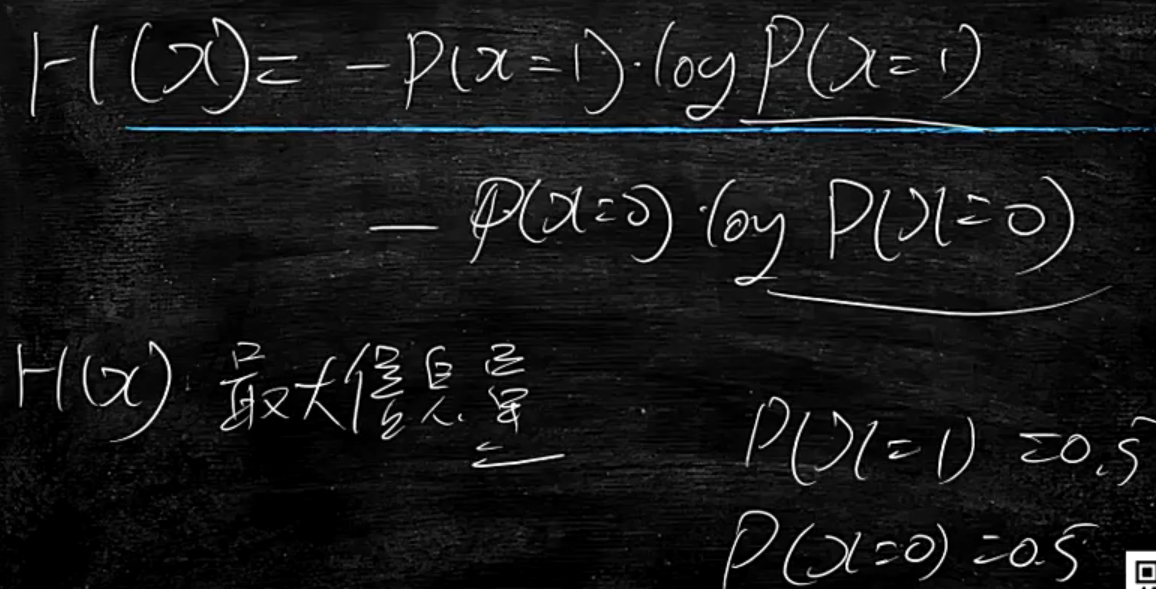 H(x)= -P(x=1)·log P(x=1)
- P(x=0)·log P(x=0)
H(x) 最大信息量
P(x=1) =0.5
P(x=0) =0.5